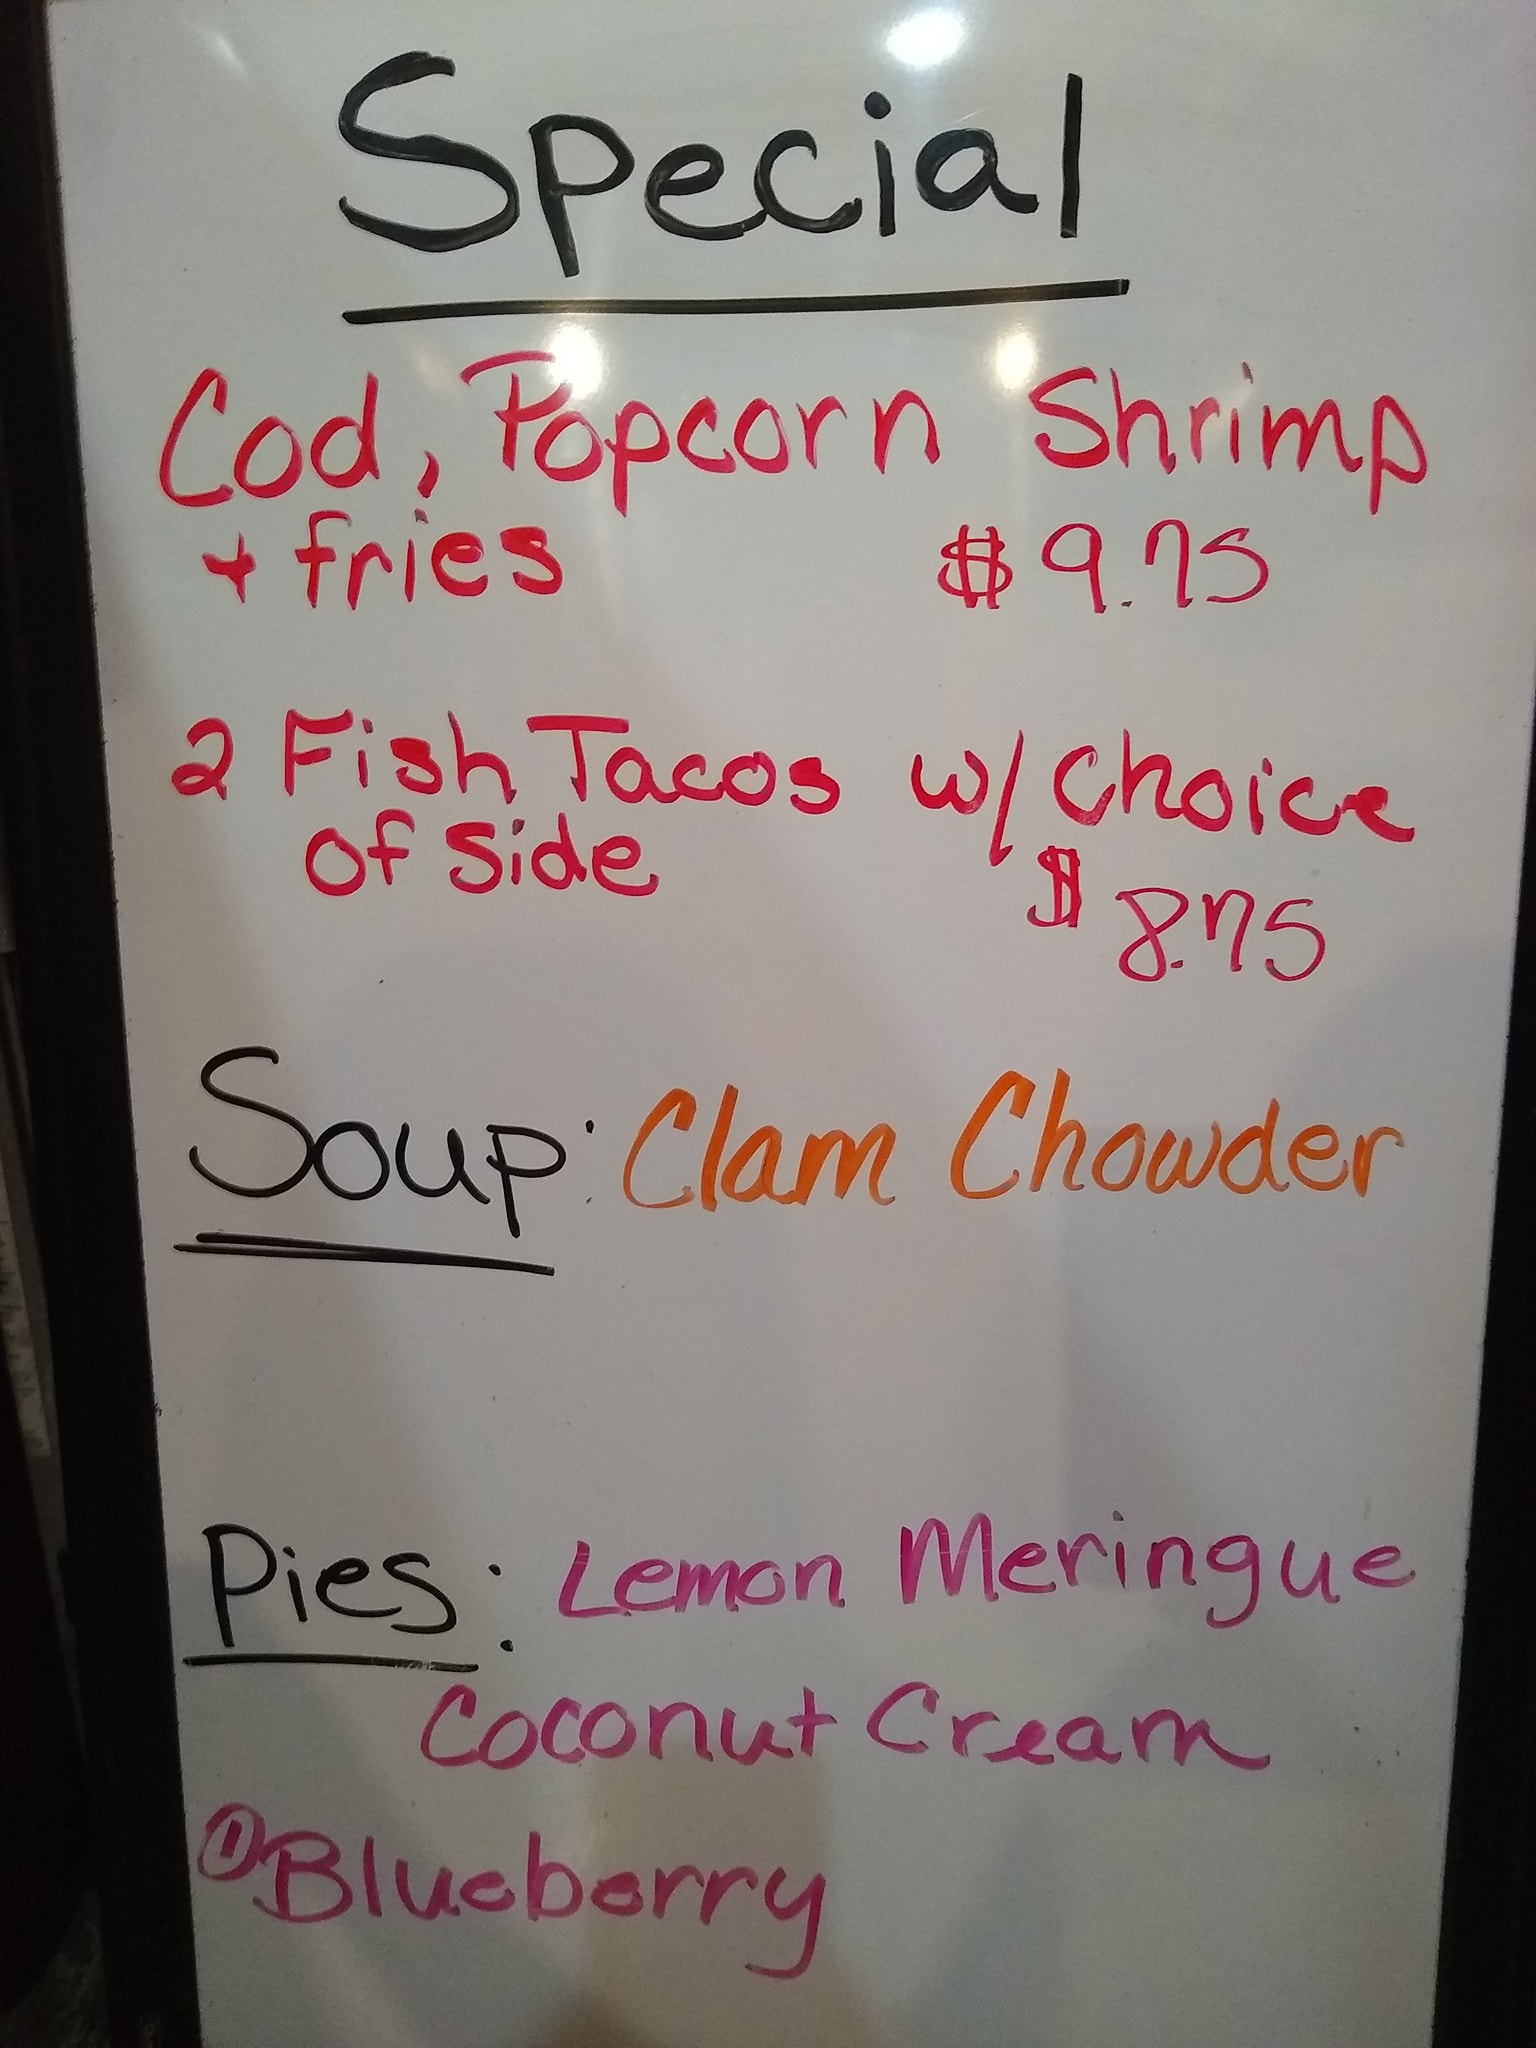 Special
Cod, Popcorn Shrimp
+ fries $9.75
2 Fish Tacos w/ choice
of side $8.75
Soup: Clam Chowder
Pies: Lemon Meringue
Coconut Cream
① Blueberry